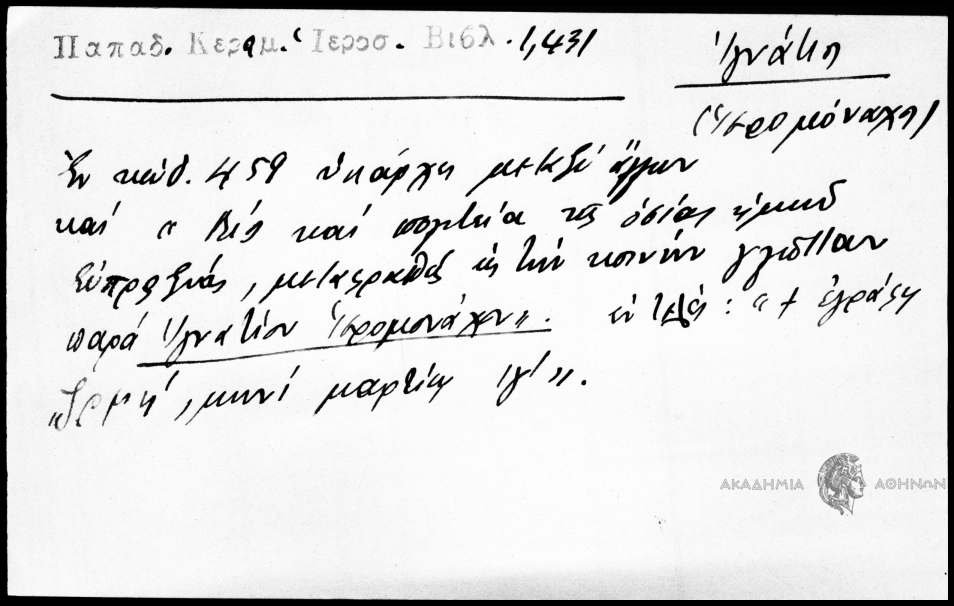 Παπαδ. Κεραμ. Ἱεροσ. Βιβλ. 1,431
Ἰγνάτιος
(ἱερομόναχος)
Ἐν κώδ. 459 ὑπάρχει μεταξὺ ἄλλων
καὶ « Βίος καὶ πολιτεία τῆς ὁσίας ἡμῶν
Εὐπραξίας, μεταφρασθεὶς εἰς τὴν κοινὴν γλῶτταν
παρὰ Ἰγνατίου ἱερομονάχου». ἐν τέλει: « + ἐγράφη
μηνὶ μαρτίῳ ιγ΄».
ΑΚΑΔΗΜΙΑ ΑΘΗΝΩΝ